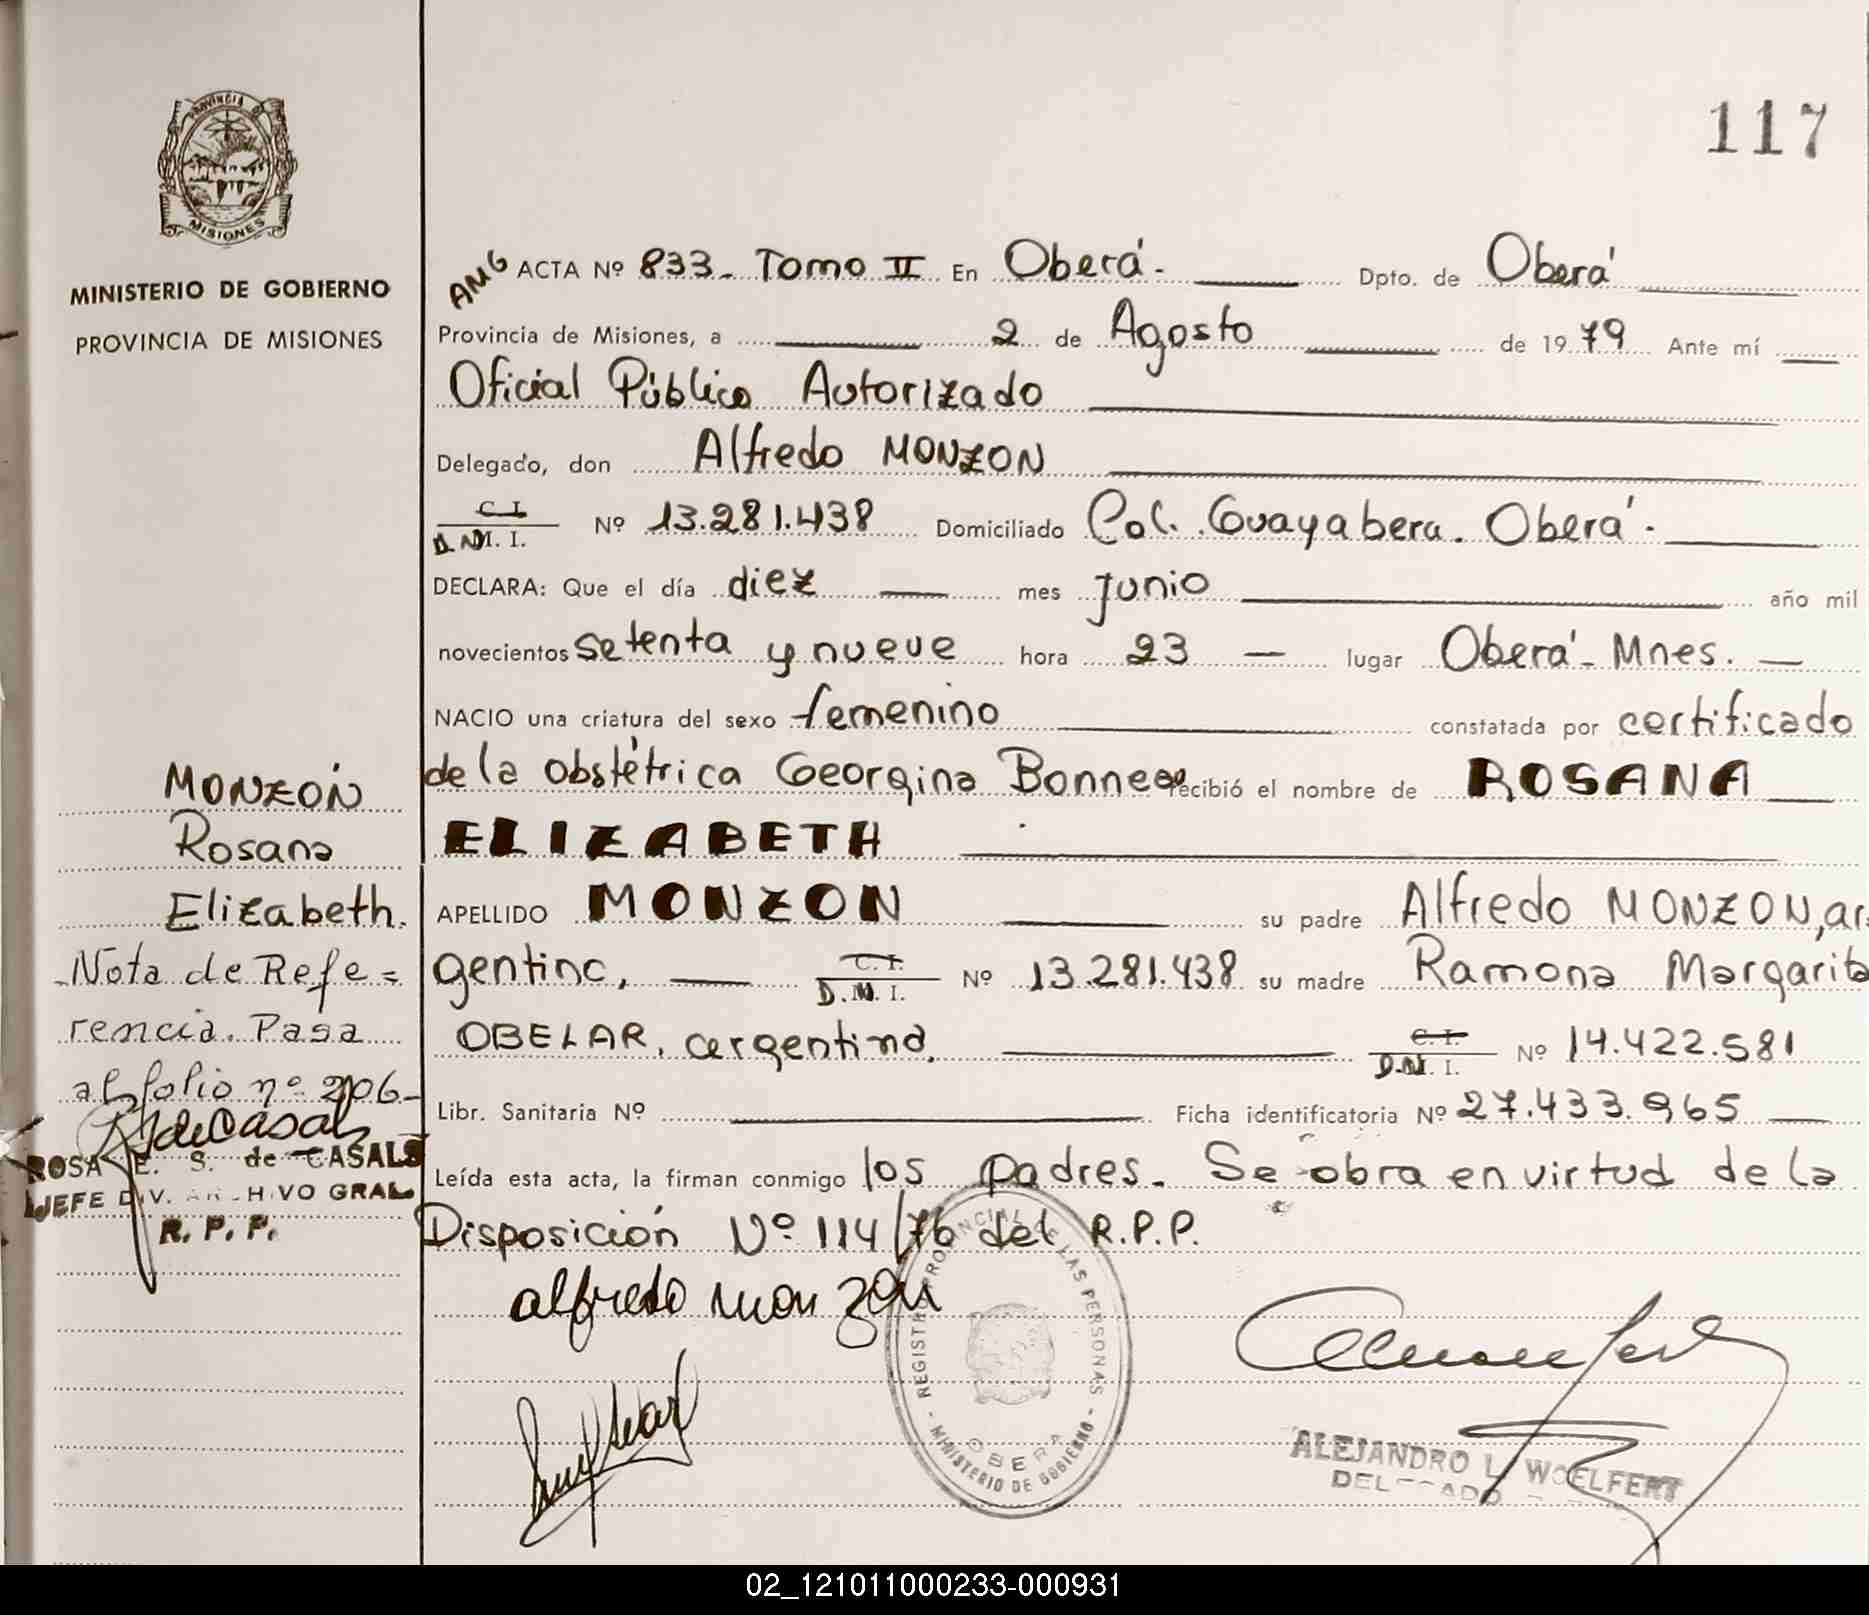 117
PROVINCIA D
MISIONES
MINISTERIO DE GOBIERNO
PROVINCIA DE MISIONES
AMG ACTA Nº 833. Tomo II En Oberá. Dpto. de Oberá
Provincia de Misiones, a 2 de Agosto de 1979 Ante mí
Oficial Público Autorizado
Delegado, don Alfredo MONZON
C. I.
D.N.I. Nº 13.281.438 Domiciliado Col. Guayabera. Oberá.
DECLARA: Que el día diez mes junio año mil
novecientos setenta y nueve hora 23 lugar Oberá - Mnes.
NACIO una criatura del sexo femenino constatada por certificado
de la obstétrica Georgina Bonnee recibió el nombre de ROSANA
ELIZABETH
APELLIDO MONZON su padre Alfredo MONZON, ar
gentino, C. I. D.N.I. Nº 13.281.438 su madre Ramona Margarita
OBELAR, argentina, C. I. D.N.I. Nº 14.422.581
Libr. Sanitaria Nº Ficha identificatoria Nº 27.433.965
Leída esta acta, la firman conmigo los padres. Se obra en virtud de la
Disposición Nº 114/76 del R.P.P.
alfredo monzon
MONZÓN
Rosana
Elizabeth.
Nota de Refe=
rencia. Pasa
al folio nº 206-
RdeCasals
ROSA E. S. de CASALS
JEFE DIV. ARCHIVO GRAL
R. P. P.
REGISTRO PROVINCIAL DE LAS PERSONAS - MINISTERIO DE GOBIERNO -
OBERA
ALEJANDRO L. WOELFERT
DELEGADO
02_121011000233-000931